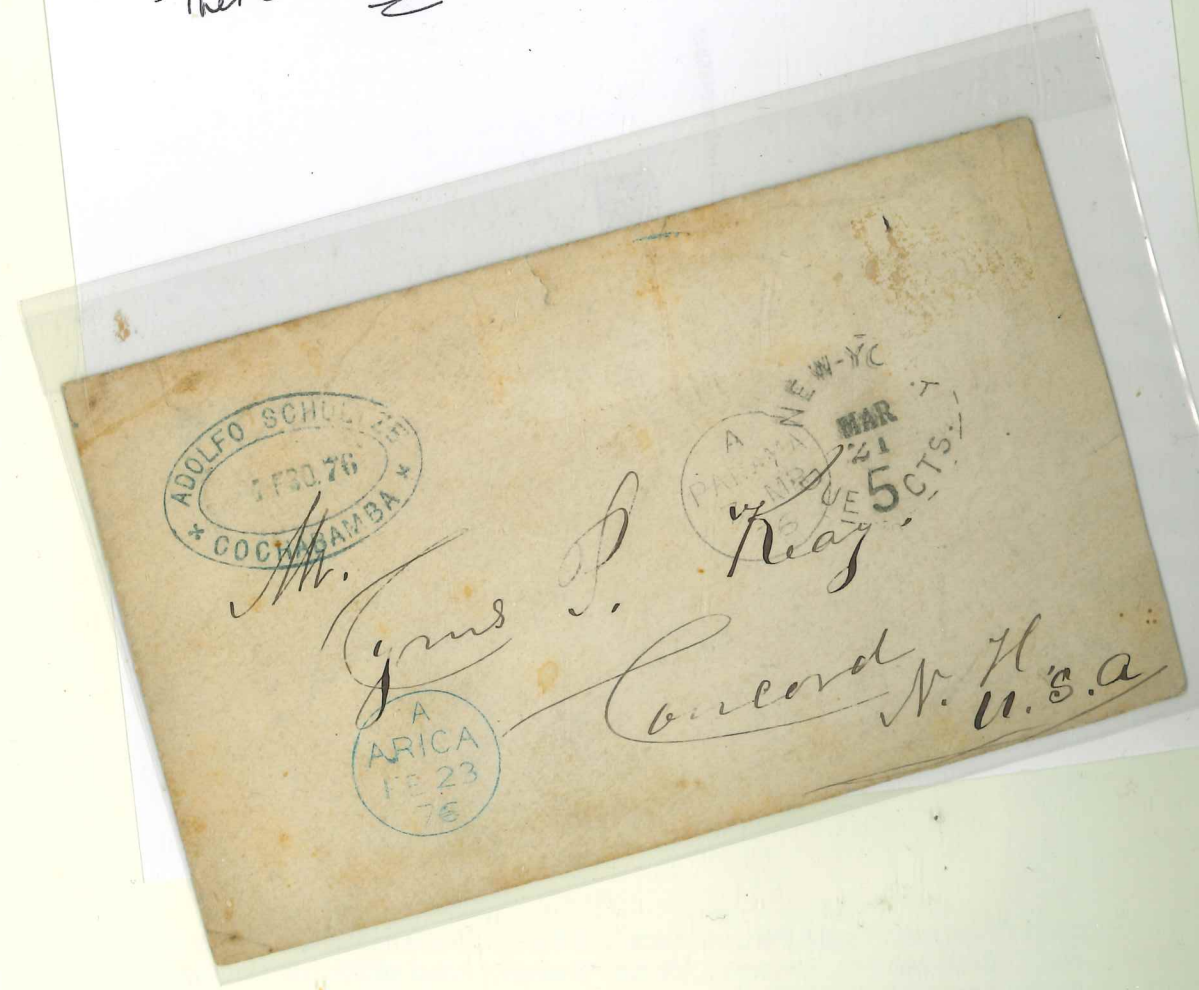 ADOLFO SCHULTZE
FBO. 76
* COCHABAMBA *
A
PANAMA
MR
NEW-YO
MAR
21
UE 5 CTS.
Mr.
Cyrus P. Keay.
Concord
N. H.
U.S.A
A
ARICA
FE 23
76